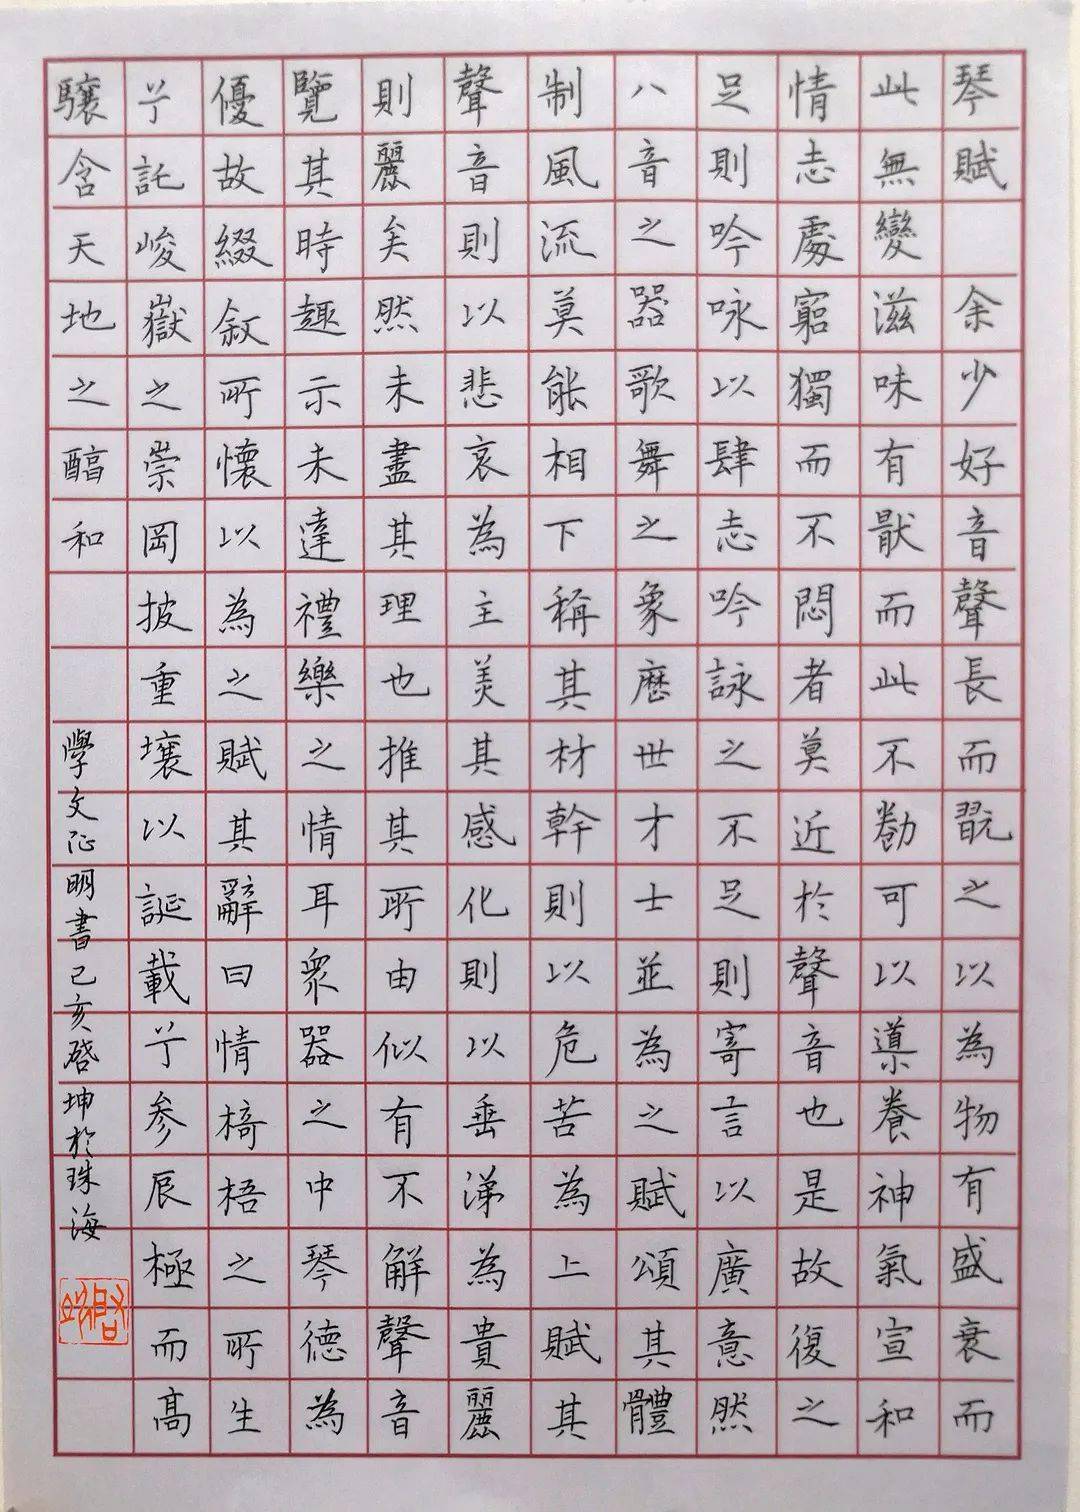 琴賦 余少好音聲長而翫之以為物有盛衰而
此無變滋味有猒而此不勌可以導養神氣宣和
情志處窮獨而不悶者莫近於聲音也是故復之
足則吟咏以肆志吟詠之不足則寄言以廣意然
八音之器歌舞之象歷世才士並為之賦頌其體
制風流莫能相下稱其材幹則以危苦為上賦其
聲音則以悲哀為主美其感化則以垂涕為貴麗
則麗矣然未盡其理也推其所由似有不解聲音
覽其時趣示未達禮樂之情耳衆器之中琴德為
優故綴叙所懷以為之賦其辭曰情椅梧之所生
兮託峻嶽之崇岡披重壤以誕載兮参辰極而高
驤含天地之醇和
學文 明書己亥啓坤於珠海